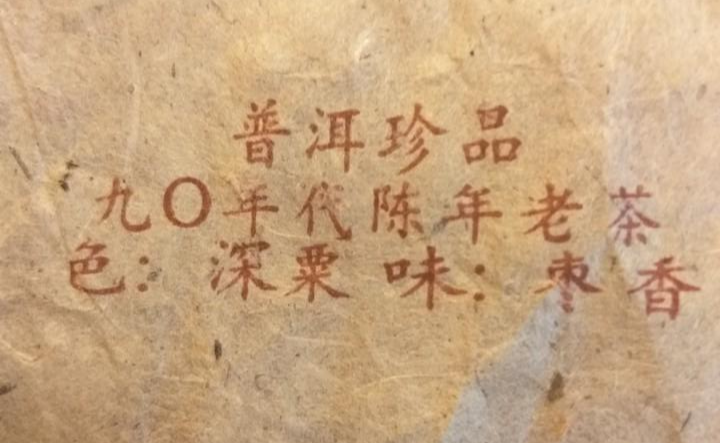 普洱珍品
九O年代陈年老茶
色：深粟 味：枣香